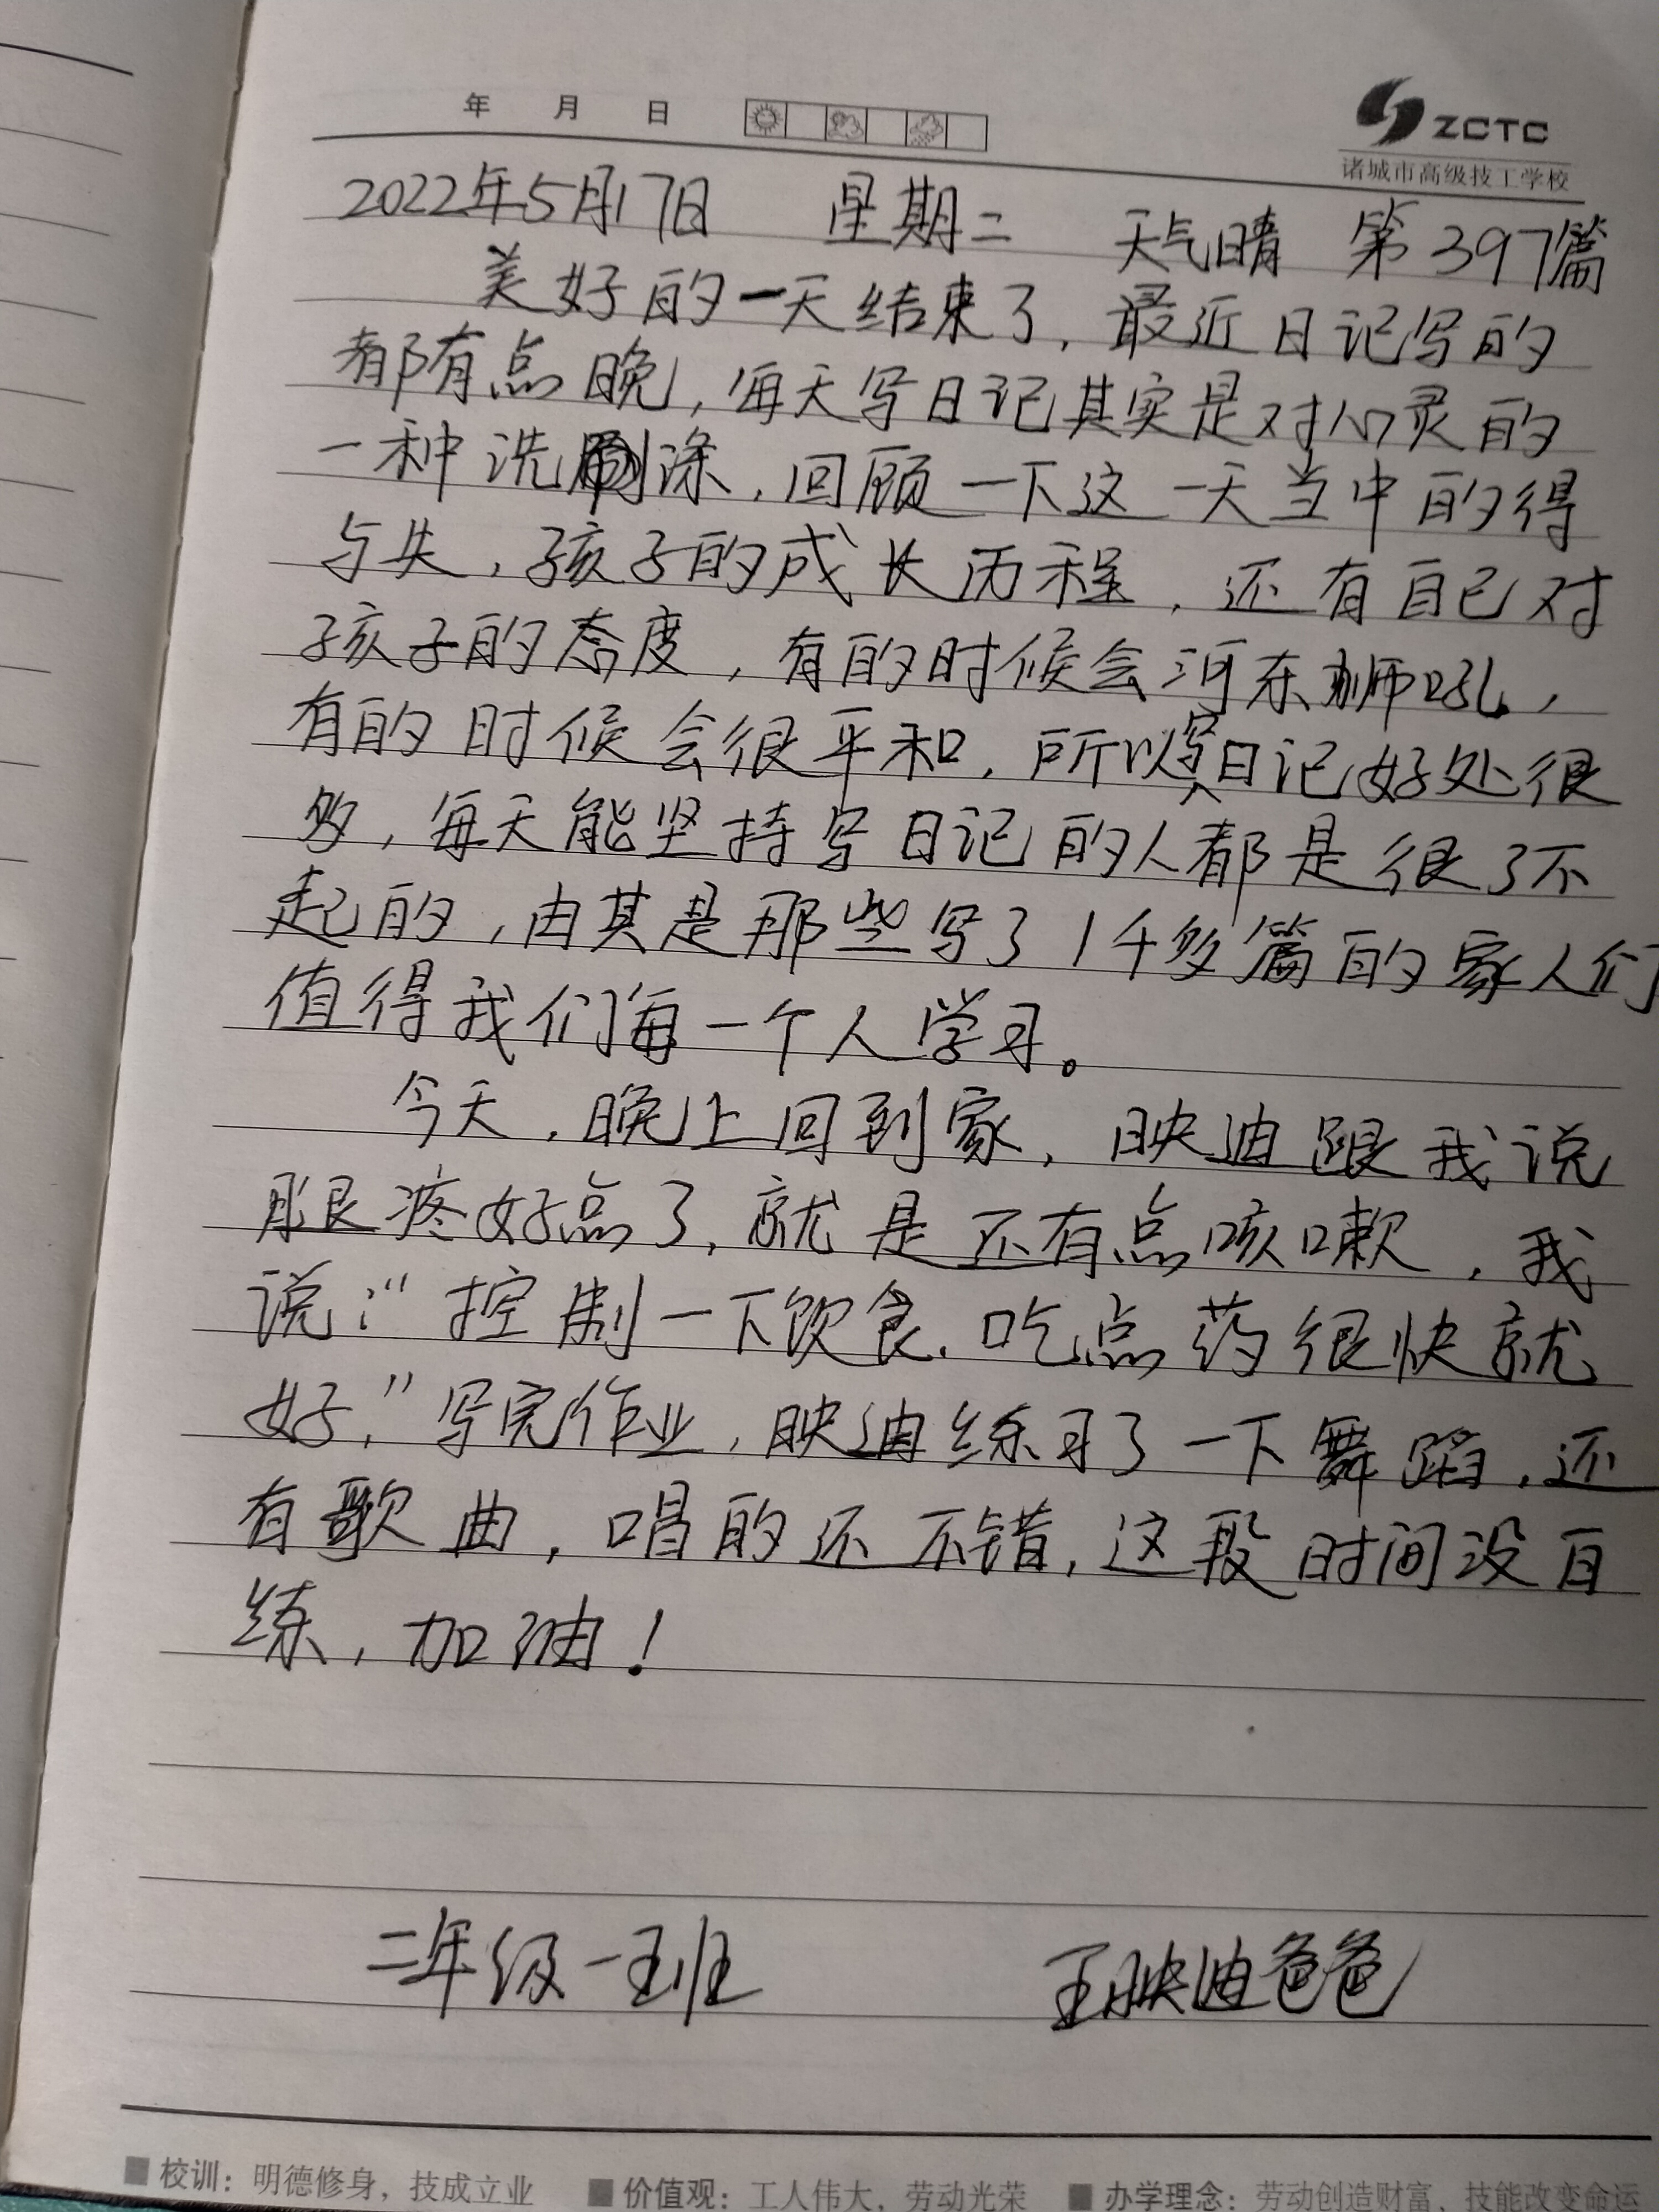 年 月 日
ZCTC
诸城市高级技工学校
2022年5月17日 星期二 天气晴 第397篇
美好的一天结束了，最近日记写的
都有点晚，每天写日记其实是对心灵的
一种洗涤，回顾一下这一天当中的得
与失，孩子的成长历程，还有自己对
孩子的态度，有的时候会河东狮吼，
有的时候会很平和，所以写日记好处很
多，每天能坚持写日记的人都是很了不
起的，由其是那些写了1千多篇的家人们
值得我们每一个人学习。
今天，晚上回到家，映迪跟我说
眼疼好点了，就是还有点咳嗽，我
说：“控制一下饮食，吃点药很快就
好，”写完作业，映迪练习了一下舞蹈，还
有歌曲，唱的还不错，这段时间没有
练，加油！
二年级一班 王映迪爸爸
校训：明德修身，技成立业 价值观：工人伟大，劳动光荣 办学理念：劳动创造财富，技能改变命运